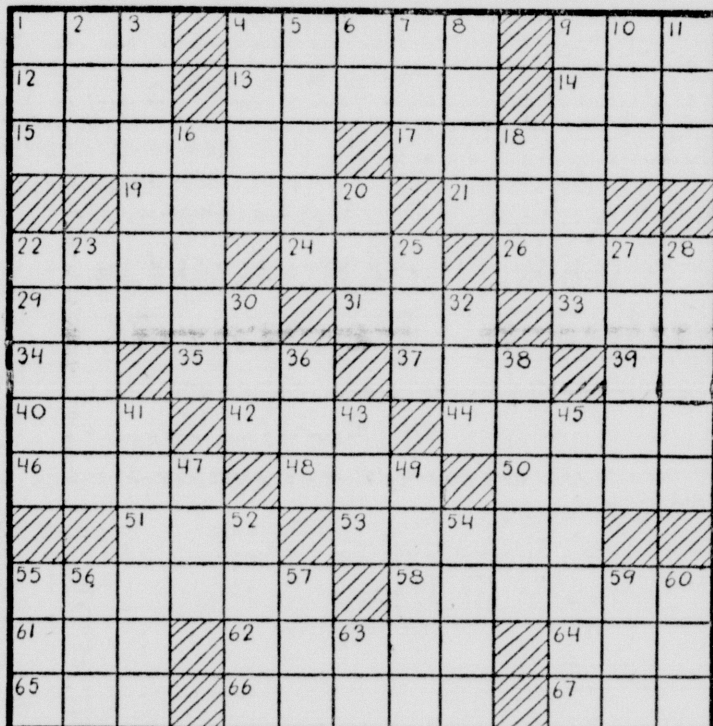 1 2 3 4 5 6 7 8 9 10 11
12 13 14
15 16 17 18
19 20 21
22 23 24 25 26 27 28
29 30 31 32 33
34 35 36 37 38 39
40 41 42 43 44 45
46 47 48 49 50
51 52 53 54
55 56 57 58 59 60
61 62 63 64
65 66 67